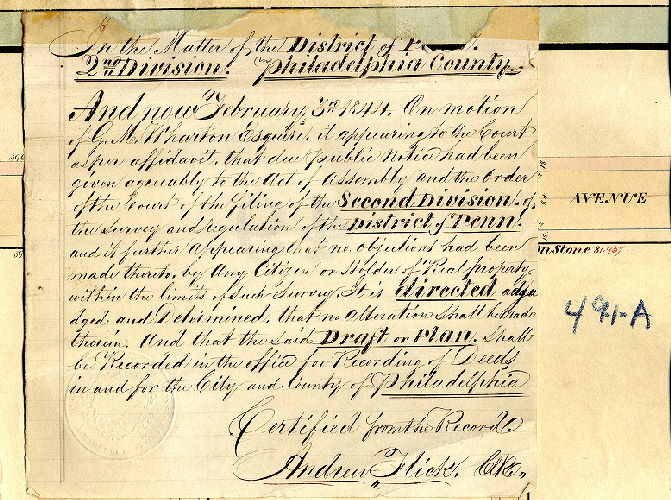 In the Matter of the District of P
2nd Division. Philadelphia County.
And now February 3d 1844. On motion
of G. M. Wharton Esquire, it appearing to the Court
as per affidavit, that due public Notice had been
given agreeably to the Act of Assembly and the Order
of the Court of the filing of the Second Division. of
the Survey and regulation of the District of Penn.
and it further appearing that no objections had been
made thereto, by any Citizen or Holder of Real property
within the limits of such Survey It is directed adju
dged and Determined, that no Alteration shall be Made
therein. And that the said Draft or Plan. Shall
be Recorded in the office for Recording of Deeds
in and for the City and County of Philadelphia
Certified from the Record.
Andrew Flick. Clk.
AVENUE
n Stone
491-A